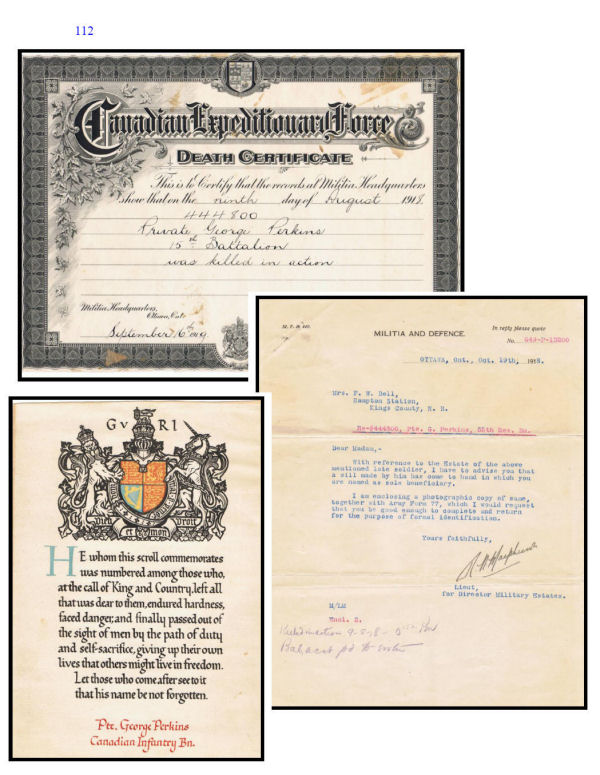 112
Canadian Expeditionary Force
DEATH CERTIFICATE
This is to Certify that the records at Militia Headquarters
show that on the ninth day of August 1918
444800
Private George Perkins
15th Battalion
was killed in action
Militia Headquarters,
Ottawa, Ont.
September 16th
MILITIA AND DEFENCE.
In reply please quote
No. 649-P-13200
OTTAWA, Ont., Oct. 19th, 1918.
Mrs. F. W. Bell,
Hampton Station,
Kings County, N. B.
Re-#444800, Pte. G. Perkins, 55th Res. Bn.
Dear Madam,-
With reference to the Estate of the above
mentioned late soldier, I have to advise you that
a will made by him has come to hand in which you
are named as sole beneficiary.
I am enclosing a photographic copy of same,
together with Army Form 77, which I would request
that you be good enough to complete and return
for the purpose of formal identification.
Yours faithfully,
Lieut,
for Director Military Estates.
M/LM
Encl. 2.
Killed in action 9-8-18
Balance pd to
G V RI
Dieu et mon Droit
HE whom this scroll commemorates
was numbered among those who,
at the call of King and Country, left all
that was dear to them, endured hardness,
faced danger, and finally passed out of
the sight of men by the path of duty
and self-sacrifice, giving up their own
lives that others might live in freedom.
Let those who come after see to it
that his name be not forgotten.
Pte. George Perkins
Canadian Infantry Bn.